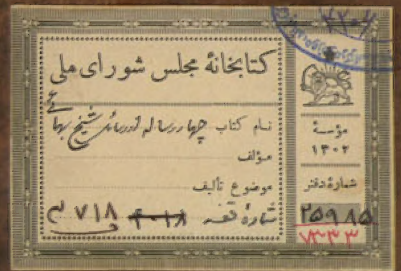 کتابخانهٔ مجلس شورای ملی
نام کتاب چهار رساله از رسائل شیخ بهائی
مؤلف
موضوع تألیف
شمارهٔ قفسه ۷۱۸
مؤسسهٔ
۱۳۰۲
شمارهٔ دفتر
۲۵۹۸۵
۷۳۳۳